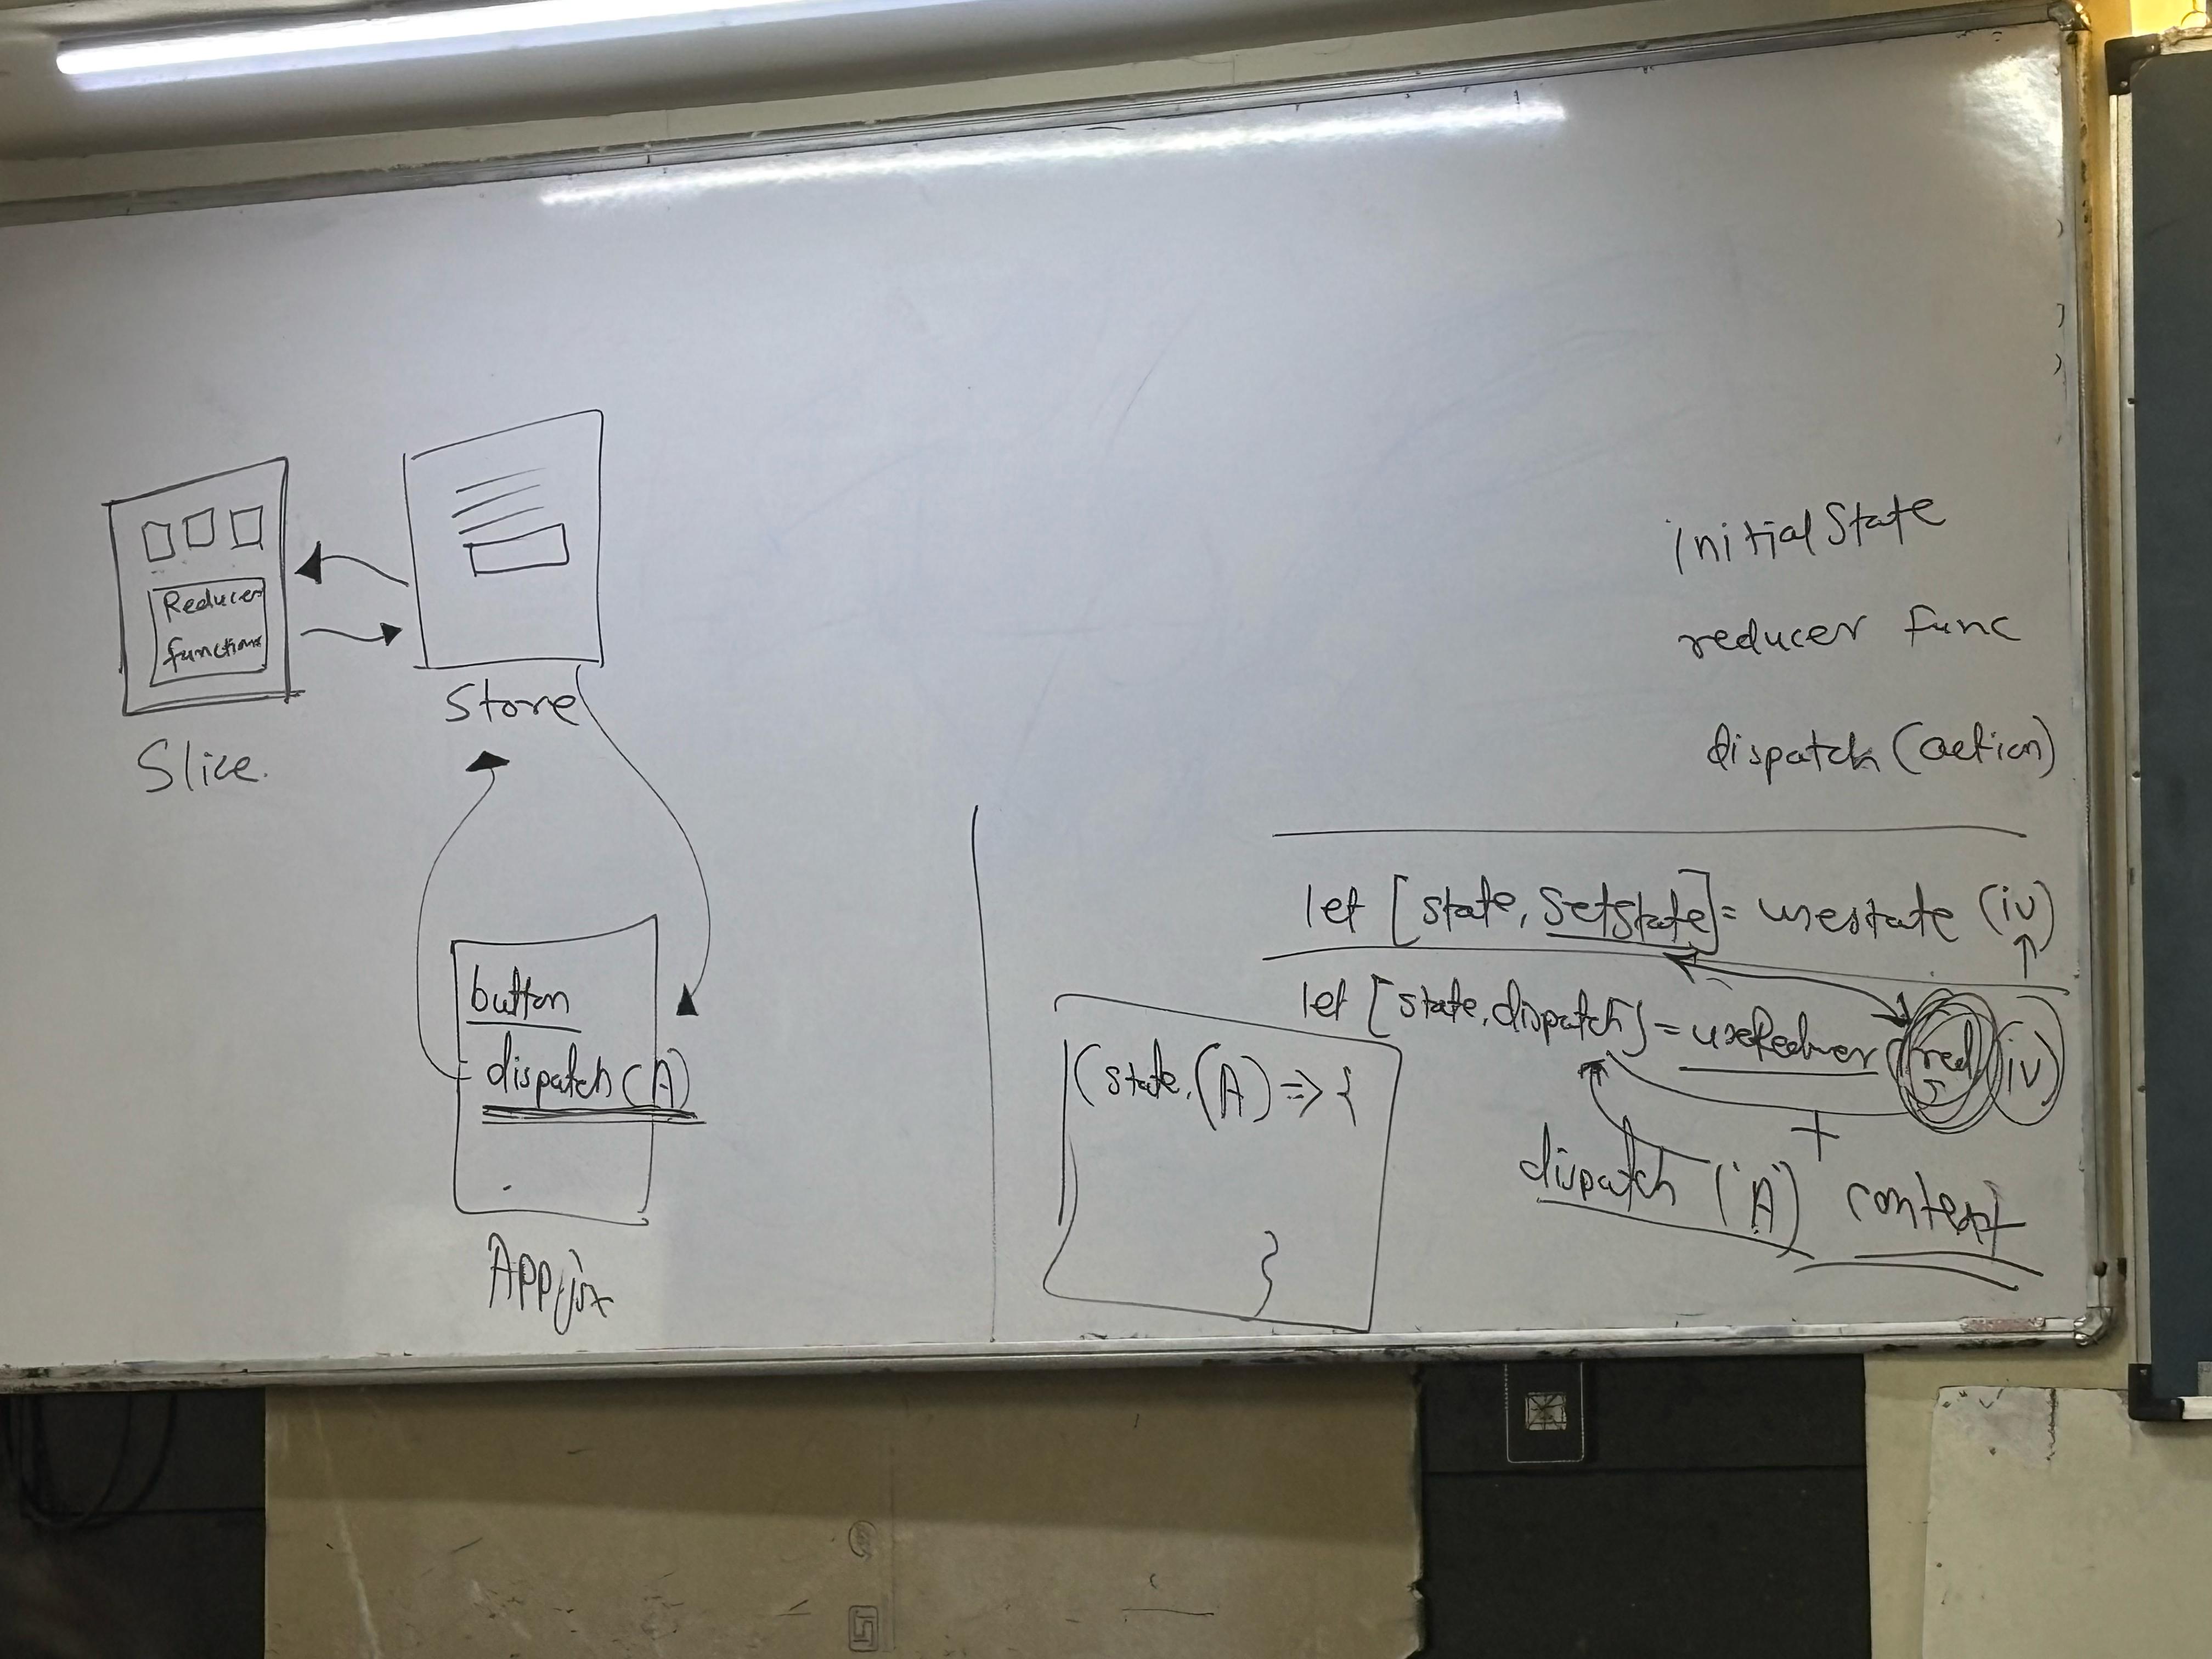 Reducer
functions
Slice.
Store
button
dispatch(A)
App.jsx
initialState
reducer func
dispatch(action)
let [state, setState] = usestate (iv)
let [state, dispatch] = useReducer (red, iv)
(state, (A) => {
}
+
dispatch (A)
context